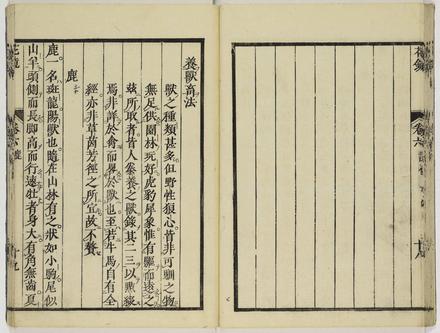 養獸畜法
獸之種類甚多但野性狠心皆非可馴之物
無足供園林玩好虎豹犀象惟有驅而遠之
兹所取者皆人豢養之獸錄其二三以點綴
焉非詳於禽而畧於獸也至若牛馬自有全
經亦非草茵芳徑之所宜故不贅
鹿
鹿一名斑龍陽獸也隨在山林有之狀如小駒尾似
山羊頭側而長脚高而行速牡者身大有角無齒夏
花鏡
卷六
鹿
十九